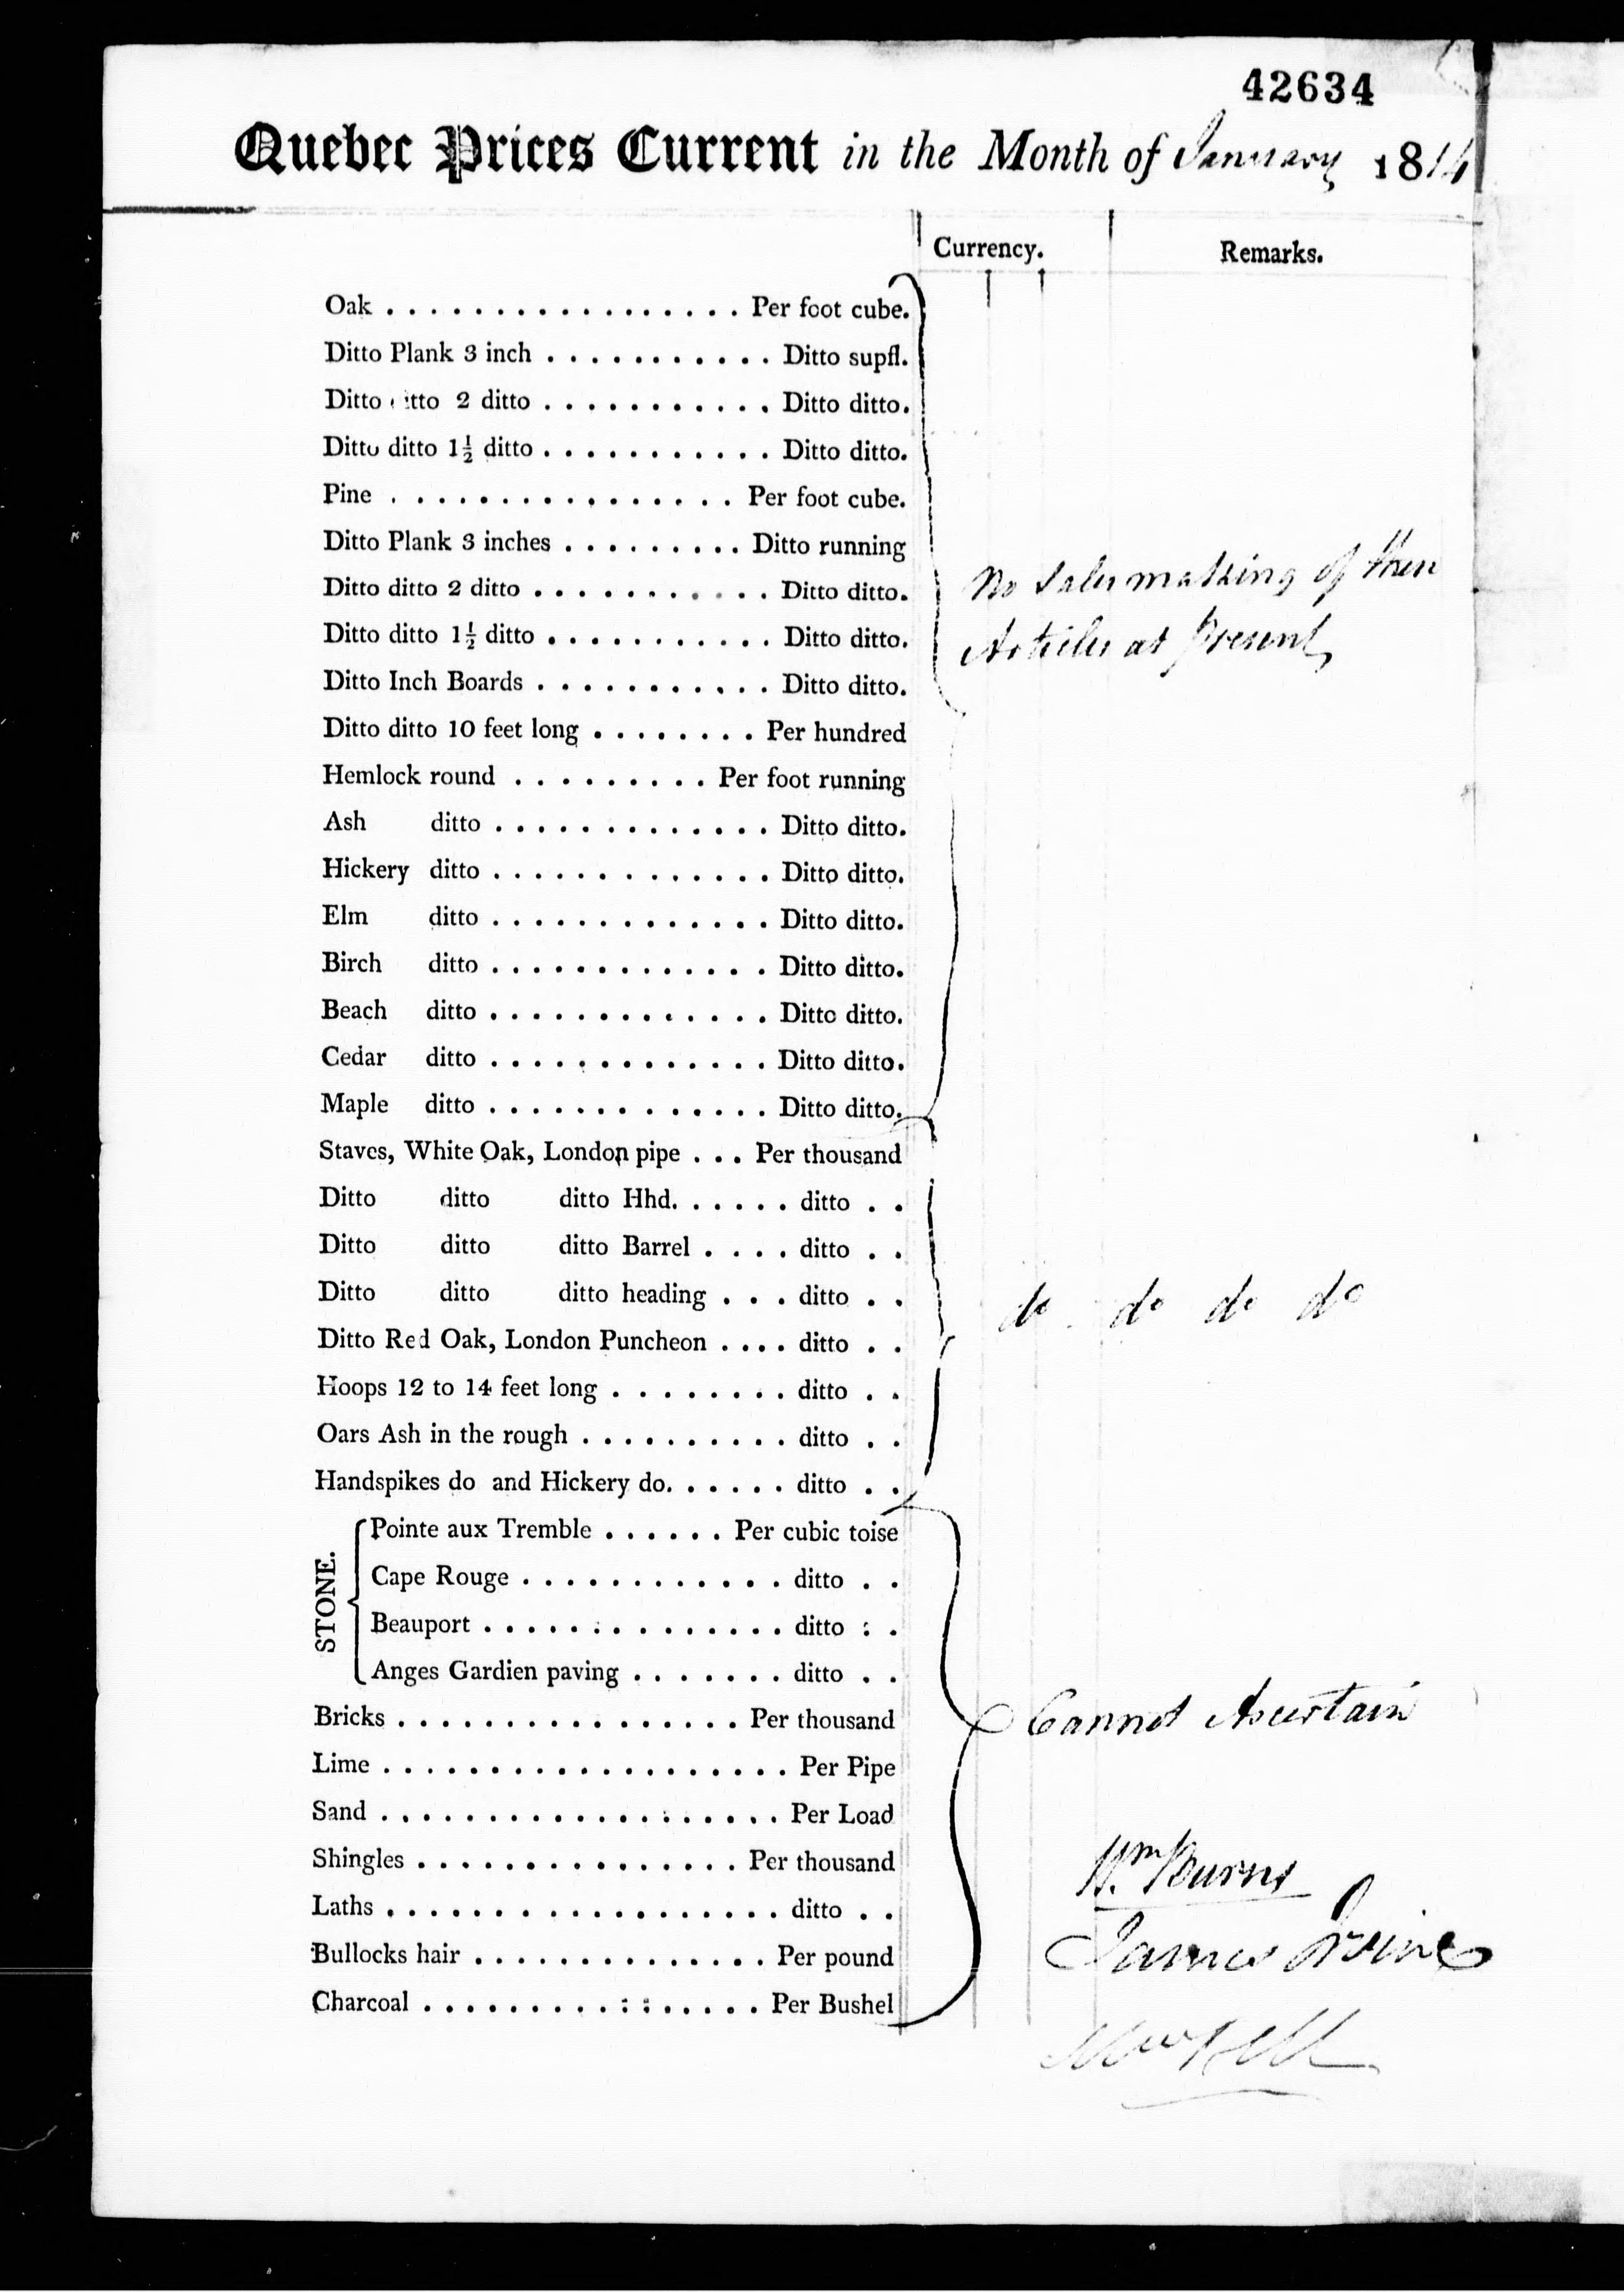 42634
Quebec Prices Current in the Month of January 1814
Currency. Remarks.
Oak . . . . . . . . . . . . . . . . . Per foot cube.
Ditto Plank 3 inch . . . . . . . . . . . Ditto supfl.
Ditto ditto 2 ditto . . . . . . . . . . . Ditto ditto.
Ditto ditto 1½ ditto . . . . . . . . . . . Ditto ditto.
Pine . . . . . . . . . . . . . . . . Per foot cube.
Ditto Plank 3 inches . . . . . . . . . Ditto running
Ditto ditto 2 ditto . . . . . . . . . . . Ditto ditto.
Ditto ditto 1½ ditto . . . . . . . . . . . Ditto ditto.
Ditto Inch Boards . . . . . . . . . . . Ditto ditto.
Ditto ditto 10 feet long . . . . . . . . Per hundred
Hemlock round . . . . . . . . . Per foot running
Ash ditto . . . . . . . . . . . . . Ditto ditto.
Hickery ditto . . . . . . . . . . . . . Ditto ditto.
Elm ditto . . . . . . . . . . . . . Ditto ditto.
Birch ditto . . . . . . . . . . . . . Ditto ditto.
Beach ditto . . . . . . . . . . . . . Ditto ditto.
Cedar ditto . . . . . . . . . . . . . Ditto ditto.
Maple ditto . . . . . . . . . . . . . Ditto ditto.
No Sales making of these
Articles at Present
Staves, White Oak, London pipe . . . Per thousand
Ditto ditto ditto Hhd. . . . . . ditto . .
Ditto ditto ditto Barrel . . . . ditto . .
Ditto ditto ditto heading . . . ditto . .
Ditto Red Oak, London Puncheon . . . . ditto . .
Hoops 12 to 14 feet long . . . . . . . . ditto . .
Oars Ash in the rough . . . . . . . . . . ditto . .
Handspikes do and Hickery do. . . . . . ditto . .
do do do do
STONE.
Pointe aux Tremble . . . . . . Per cubic toise
Cape Rouge . . . . . . . . . . . . ditto . .
Beauport . . . . . . . . . . . . . . ditto : .
Anges Gardien paving . . . . . . . ditto . .
Bricks . . . . . . . . . . . . . . . . Per thousand
Lime . . . . . . . . . . . . . . . . . . . Per Pipe
Sand . . . . . . . . . . . . . . . . . . . Per Load
Shingles . . . . . . . . . . . . . . . Per thousand
Laths . . . . . . . . . . . . . . . . . . . ditto . .
Bullocks hair . . . . . . . . . . . . . . Per pound
Charcoal . . . . . . . . . : : . . . . . Per Bushel
Cannot Ascertain
Wm. Burns
James Irvine